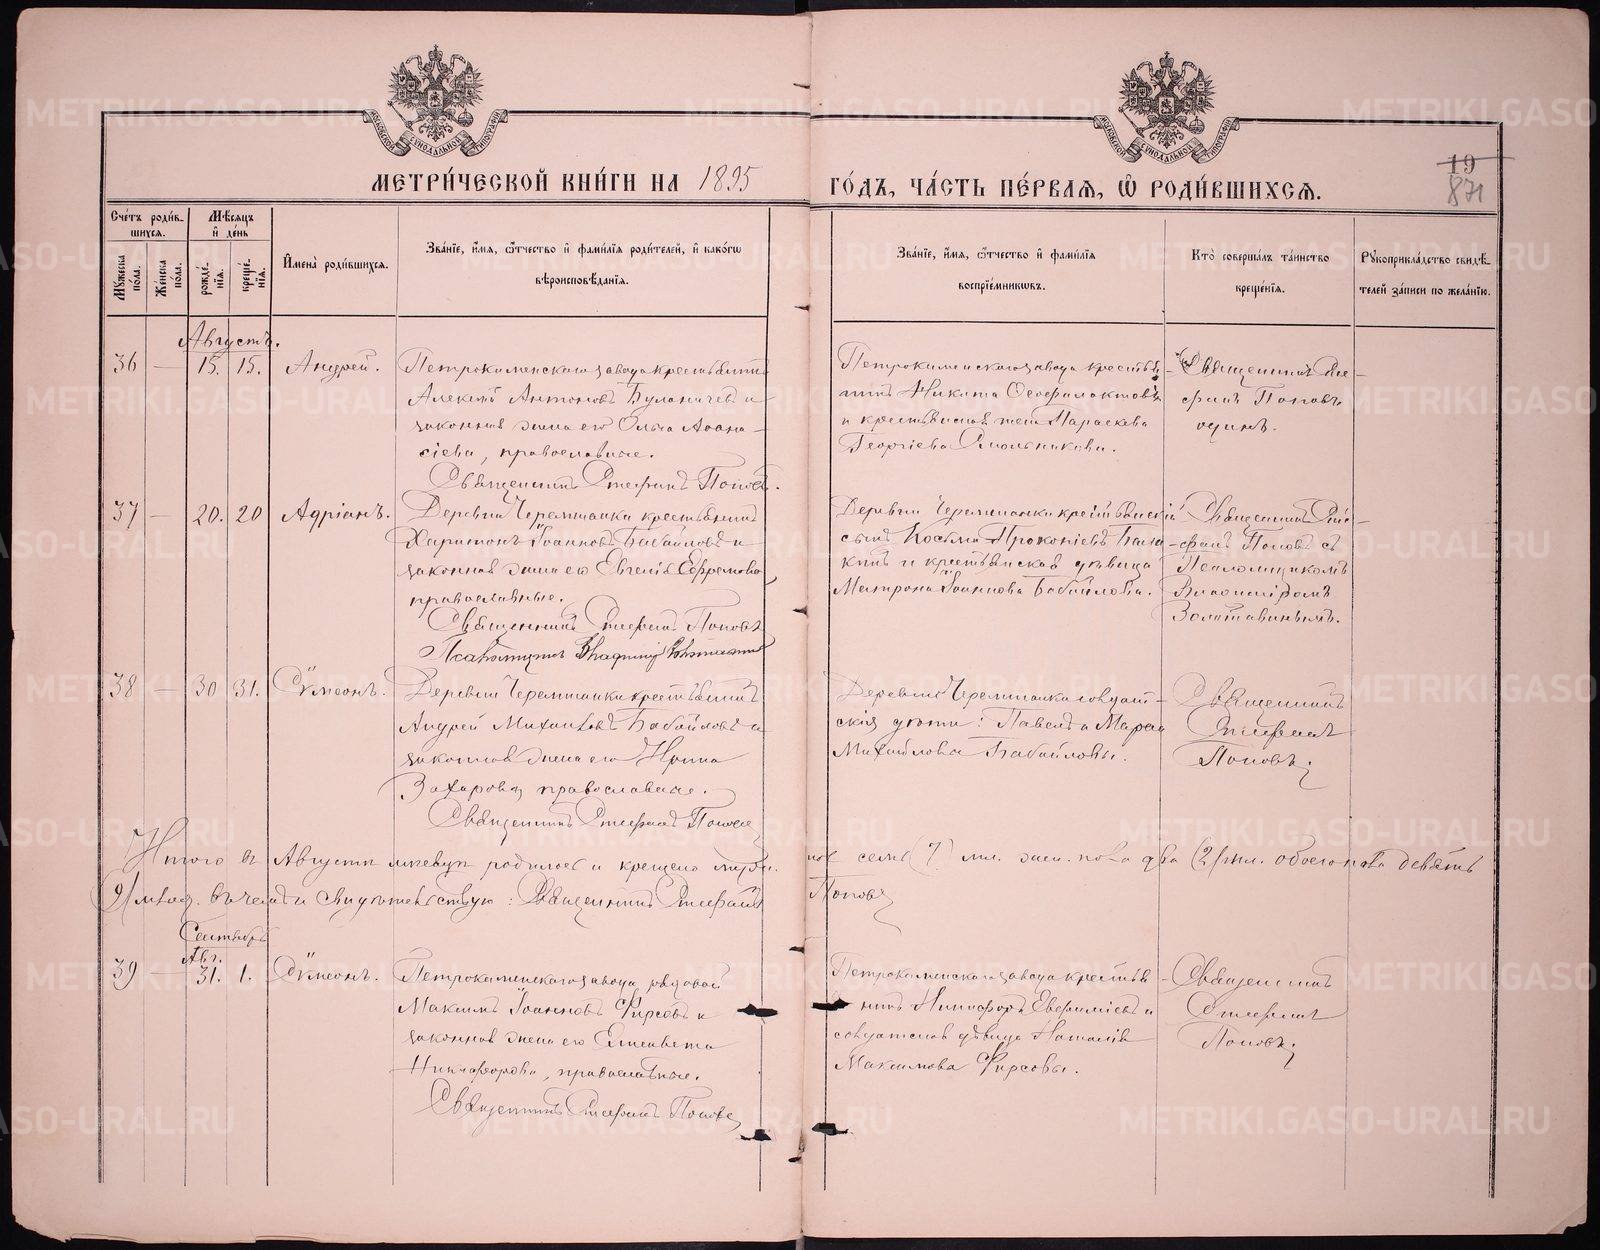 МОСКОВСКОЙ СѴНОДАЛЬНОЙ ТИПОГРАФІИ
МОСКОВСКОЙ СѴНОДАЛЬНОЙ ТИПОГРАФІИ
19
871
МЕТРИ́ЧЕСКОЙ КНИ́ГИ НА 1895
ГО́ДЪ, ЧА́СТЬ ПЕ́РВАЯ, Ѡ РОДИ́ВШИХСЯ.
Сче́тъ роди́вшихся.
Мꙋжеска по́ла.
Же́нска по́ла.
Мѣ́сяцъ и҆ де́нь
рожде́нїя.
креще́нїя.
И҆мена̀ роди́вшихся.
Зва́нїе, и҆́мя, ѻ҆́тчество и҆ фами́лїя роди́телей, и҆ како́гѡ
вѣроисповѣ́данїя.
Зва́нїе, и҆́мя, ѻ҆́тчество и҆ фами́лїя
воспрїе́мникѡвъ.
Кто̀ соверша́лъ та́инство
креще́нїя.
Рꙋкоприкла́дство свидѣ́-
телей за́писи по жела́нїю.
Августъ.
36 — 15. 15. Андрей.
Петрокаменскаго завода крестьянинъ
Алексій Антоновъ Буланичевъ и
законная жена его Ольга Афана-
сіева, православные.
Священникъ Стефанъ Поповъ.
Петрокаменскаго завода крестья-
нинъ Никита Феофилактовъ
и крестьянская жена Параскева
Георгіева Смольникова.
Священникъ Сте-
фанъ Поповъ
одинъ.
37 — 20. 20 Адріанъ.
Деревни Черемшанки крестьянинъ
Харитонъ Іоанновъ Бабайловъ и
законная жена его Евгенія Ефремова,
православные.
Священникъ Стефанъ Поповъ
Псаломщикъ Владимір Золотавинъ
Деревни Черемшанки крестьянскій
сынъ Косьма Прокопіевъ
и крестьянская дѣвица
Матрона Іоаннова Бабайлова.
Священникъ Сте-
фанъ Поповъ съ
Псаломщикомъ
Владиміромъ
Золотавинымъ.
38 — 30 31. Сѵмеонъ.
Деревни Черемшанки крестьянинъ
Андрей Михаиловъ Бабайловъ и
законная жена его Ирина
Захарова, православные.
Священникъ Стефанъ Поповъ
Деревни Черемшанки солдат-
скія дѣти: Павелъ и Марія
Михайловы Бабайловы.
Священникъ
Стефанъ
Поповъ
Итого въ Августѣ мѣсяцѣ родилось и крещено муж. пола семь (7) мл. жен. пола два (2) мл. обоего пола девять
(9) млад. въ чемъ и свидѣтельствую: Священникъ Стефанъ Поповъ
Сентябрь
Авг.
39 — 31. 1. Сѵмеонъ.
Петрокаменскаго завода рядовой
Максимъ Іоанновъ Фирсовъ и
законная жена его Елисавета
Никифорова, православные.
Священникъ Стефанъ Поповъ
Петрокаменскаго завода крестья-
нинъ Никифоръ Евфиміевъ и
солдатская дѣвица Наталія
Максимова Фирсовы.
Священникъ
Стефанъ
Поповъ
METRIKI.GASO-URAL.RU